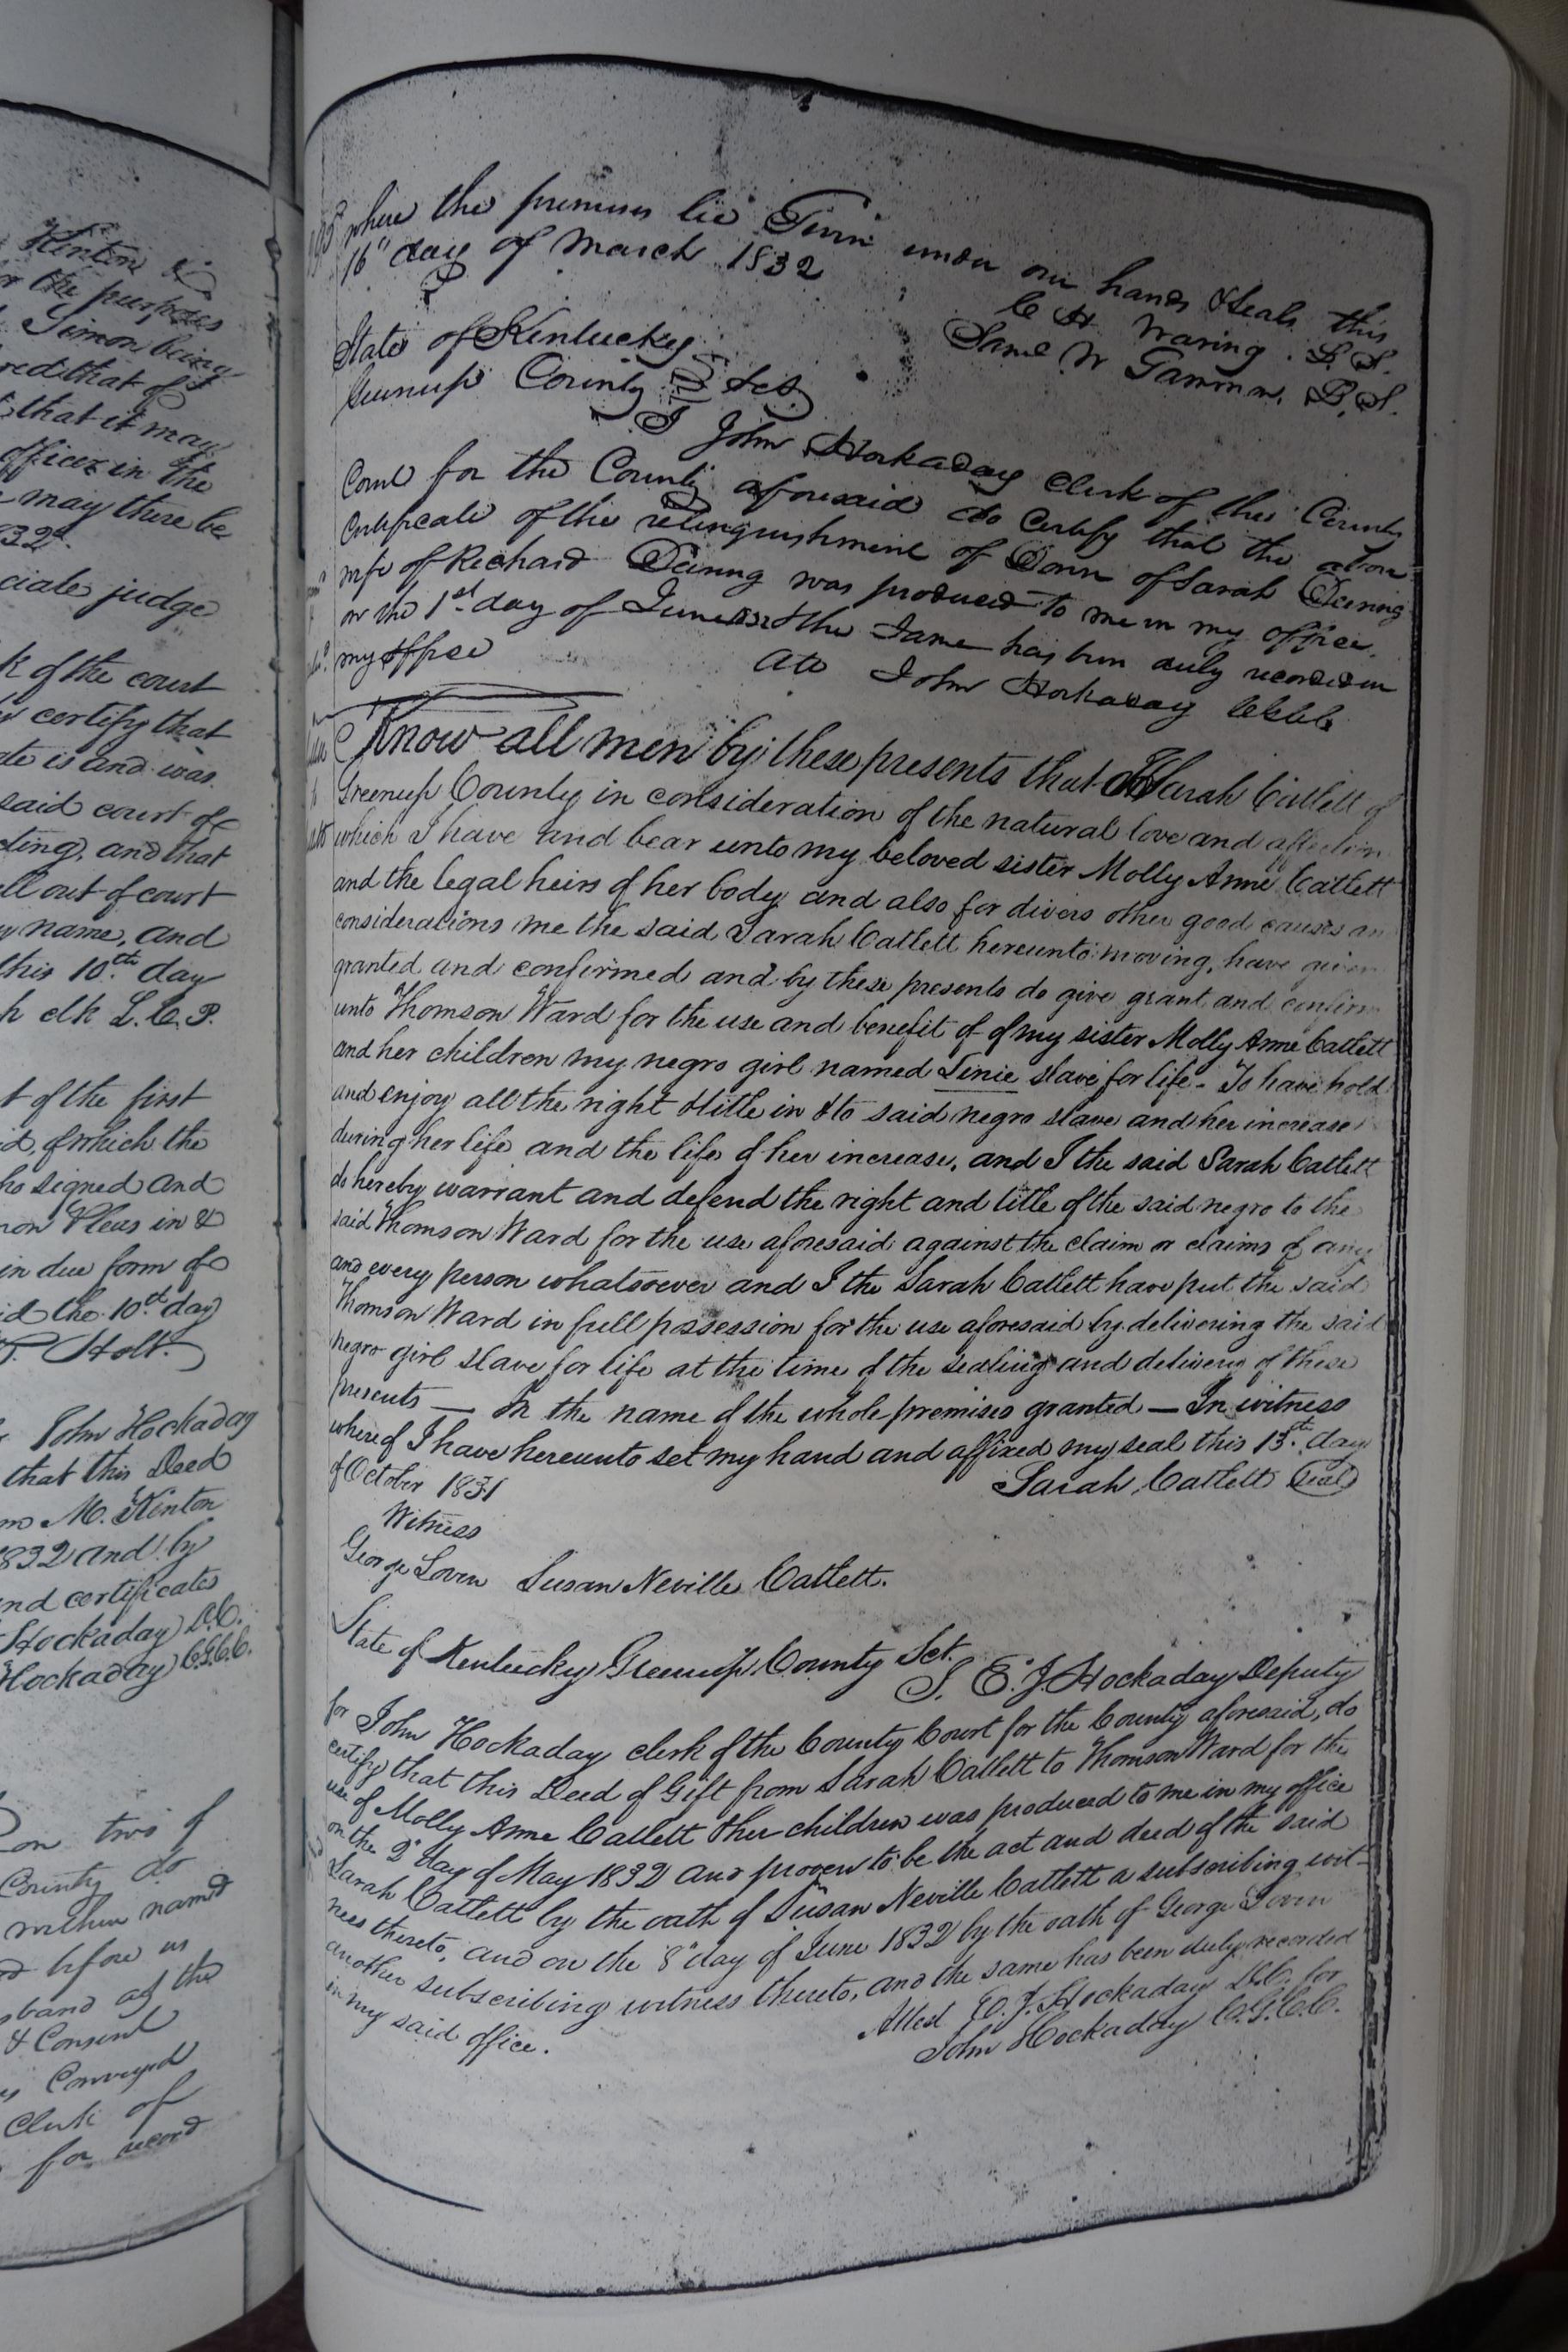 Kenton &
or the purposes
Simon being
red that of
that it may
officer in the
may there be
32.
ciate judge
k of the court
certify that
te is and was
said court of
cting, and that
ll out of court
y name, and
this 10th day
h clk L.C.P.
t of the first
d, of which the
ho signed and
mon Pleas in &
in due form of
id the 10th day
Holt.
John Hockaday
that this Deed
M. Kinton
1832 and by
nd certificates
Hockaday D.C.
Hockaday C.G.C.C.
on two of
County do
within named
before us
sband as the
& Consent
Conveyed
Clerk of
for record
where the premises lie Given under our hands & Seals this
16" day of March 1832
C H Waring. L.S.
Saml W Gammon. L.S.
State of Kentucky
Greenup County Sct
I John Hockaday Clerk of the County
Court for the County aforesaid do Certify that the above
Certificate of the relinquishment of Dower of Sarah Deering
wife of Richard Deering was produced to me in my office
on the 1st day of June 1832 & the same has been duly recorded in
my office
Att John Hockaday Clk
Know all men by these presents that I Sarah Catlett of
Greenup County in consideration of the natural love and affection
which I have and bear unto my beloved sister Molly Anne Catlett
and the legal heirs of her body and also for divers other good causes an
considerations me the said Sarah Catlett hereunto moving, have given
granted and confirmed and by these presents do give grant and confirm
unto Thomson Ward for the use and benefit of of my sister Molly Anne Catlett
and her children my negro girl named Linie slave for life - To have hold
and enjoy all the right & title in & to said negro slave and her increase
during her life and the life of her increase, and I the said Sarah Catlett
do hereby warrant and defend the right and title of the said negro to the
said Thomson Ward for the use aforesaid against the claim or claims of any
and every person whatsoever and I the Sarah Catlett have put the said
Thomson Ward in full possession for the use aforesaid by delivering the said
negro girl slave for life at the time of the sealing and delivery of these
presents — In the name of the whole premises granted — In witness
where of I have hereunto set my hand and affixed my seal this 13th day
of October 1831
Sarah Catlett Seal
Witness
George Loven Susan Neville Catlett.
State of Kentucky Greenup County Sct.
I. E. J. Hockaday Deputy
for John Hockaday clerk of the County Court for the County aforesaid, do
certify that this Deed of Gift from Sarah Catlett to Thomson Ward for the
use of Molly Anne Catlett & her children was produced to me in my office
on the 2d day of May 1832 and proven to be the act and deed of the said
Sarah Catlett by the oath of Susan Neville Catlett a subscribing wit-
ness thereto, and on the 8" day of June 1832 by the oath of George Loven
another subscribing witness thereto, and the same has been duly recorded
in my said office.
Attest E. J. Hockaday D.C. for
John Hockaday C.G.C.C.